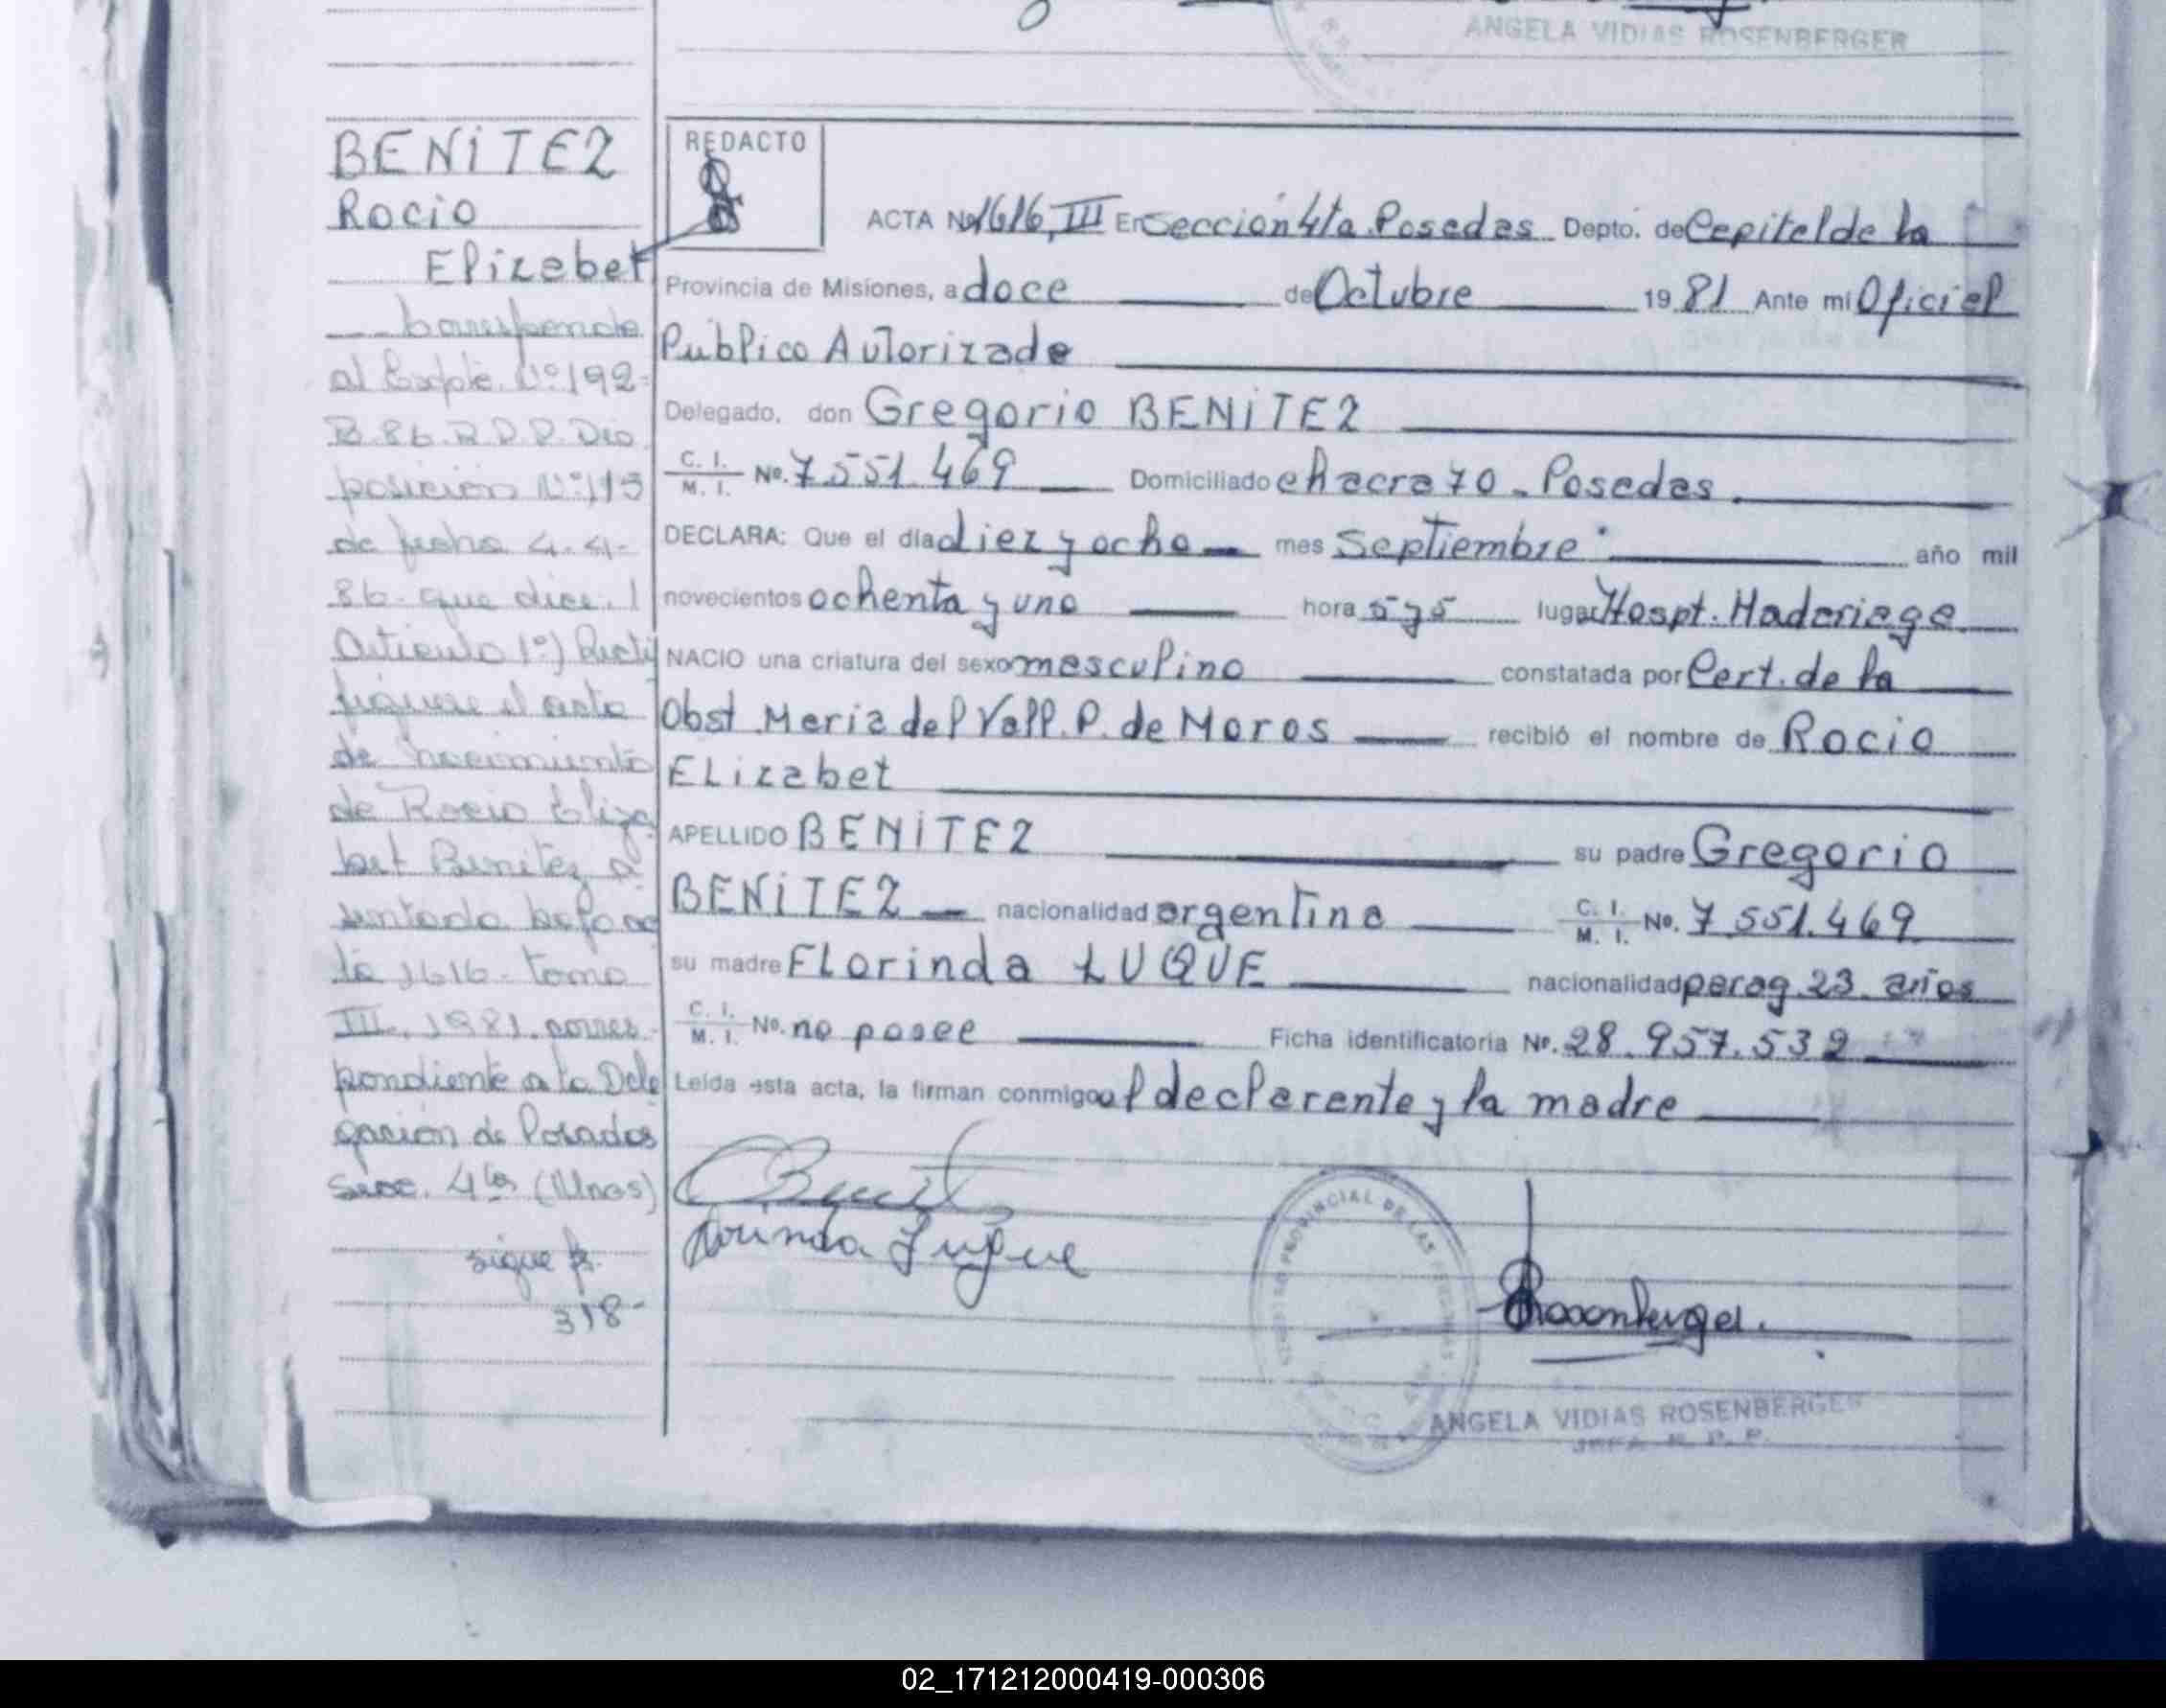 ANGELA VIDIAS ROSENBERGER
BENITEZ
Rocio
Elizabet
Corresponde
al Expte. Nº 192-
B.86.R.P.P. Dis
posicion Nº 115
de fecha 4.4-
86- que dice.
Articulo 1º) Recti
fiquese el acta
de nacimiento
de Rocio Eliza
bet Benitez a
sentada bajo ac
ta 1616- tomo
III. 1981. corres
pondiente a la Dele
gacion de Posadas
Secc. 4ta (Mnes)
sigue fs.
318-
REDACTO
ACTA No 1616, III En Sección 4ta Posadas Depto. de Capital de la
Provincia de Misiones, a doce de Octubre 19 81 Ante mi Oficial
Publico Autorizado
Delegado, don Gregorio BENITEZ
C. I. / M. I. No. 7.551.469 Domiciliado chacra 70 - Posadas
DECLARA: Que el día diez y ocho mes Septiembre año mil
novecientos ochenta y uno hora 5 y 5 lugar Hospt. Madariaga
NACIO una criatura del sexo masculino constatada por Cert. de la
Obst Maria del Vall. P. de Moros recibió el nombre de Rocio
Elizabet
APELLIDO BENITEZ su padre Gregorio
BENITEZ nacionalidad argentina C. I. / M. I. No. 7.551.469
su madre Florinda LUQUE nacionalidad parag 23 años
C. I. / M. I. No. no posee Ficha identificatoria No. 28.957.532
Leída esta acta, la firman conmigo el declarente y la madre
Florinda Luque
Rosenberger.
PROVINCIAL DE LAS PERSONAS
ANGELA VIDIAS ROSENBERGER
JEFA R. P. P.
02_171212000419-000306